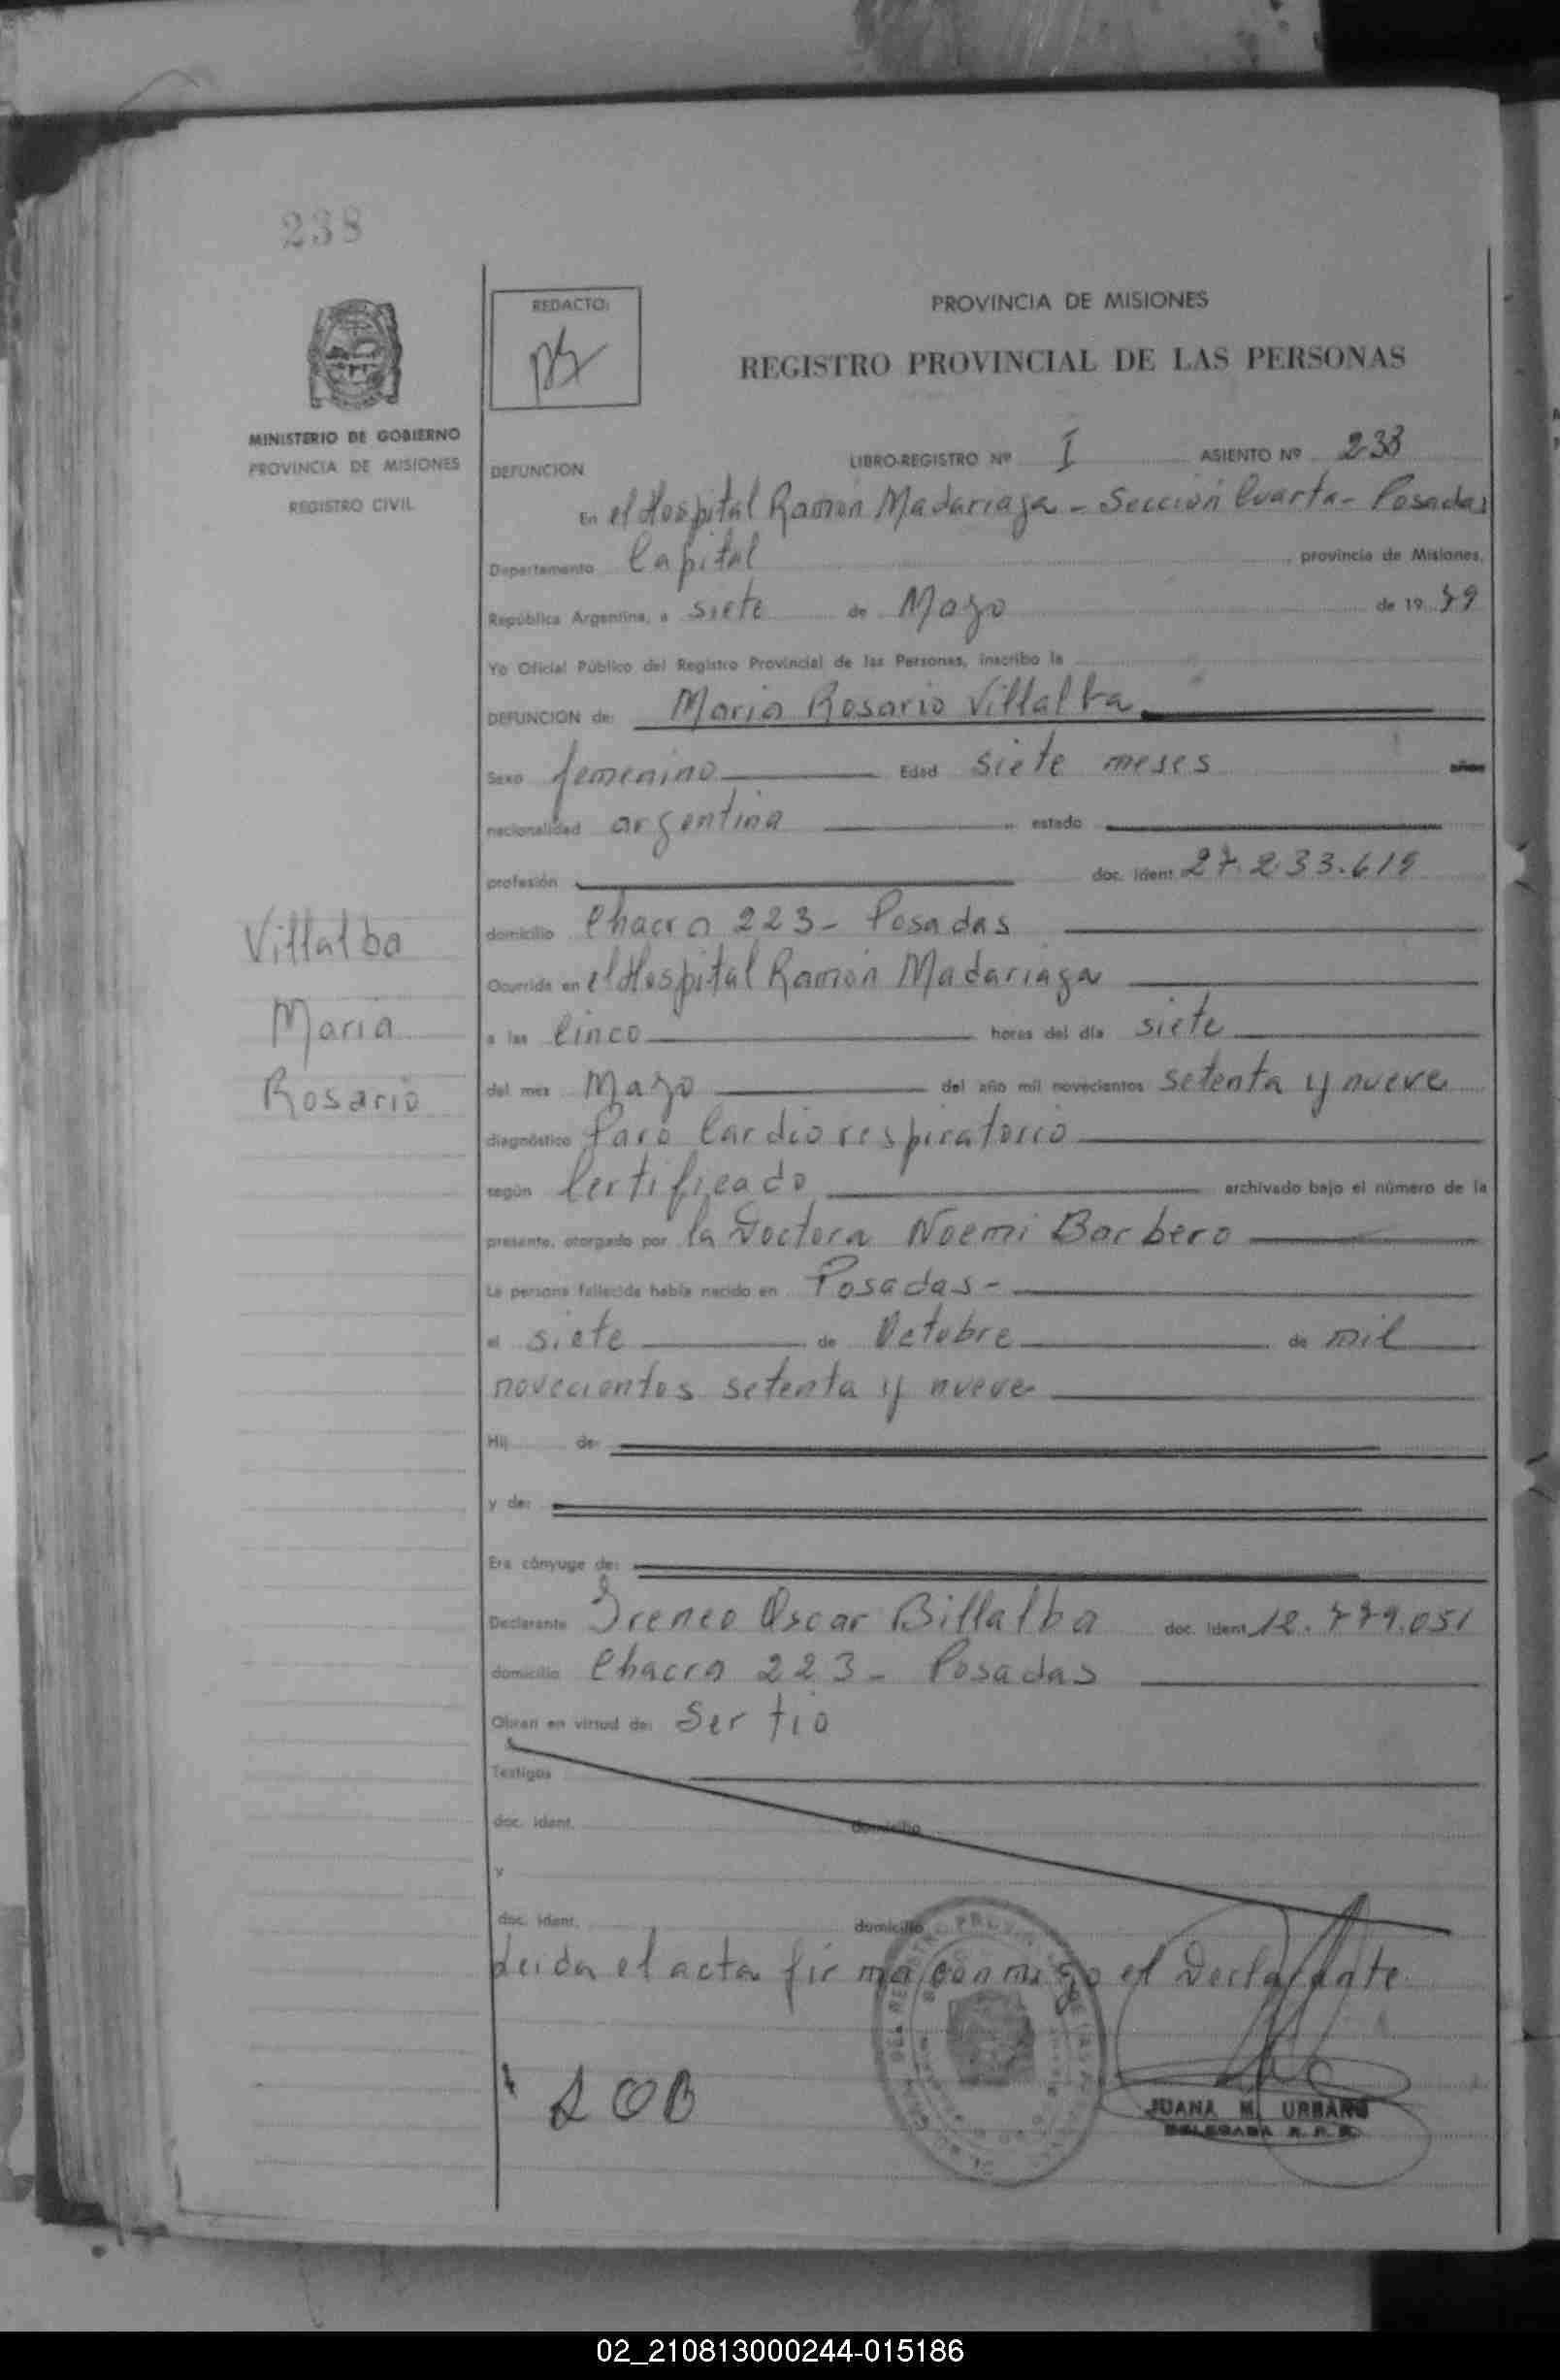 238
REDACTO:
PROVINCIA DE MISIONES
REGISTRO PROVINCIAL DE LAS PERSONAS
MINISTERIO DE GOBIERNO
PROVINCIA DE MISIONES
REGISTRO CIVIL
DEFUNCION LIBRO-REGISTRO Nº I ASIENTO Nº 238
En el Hospital Ramón Madariaga - Sección Cuarta - Posadas
Departamento Capital, provincia de Misiones,
República Argentina, a siete de Mayo de 19 79
Yo Oficial Público del Registro Provincial de las Personas, inscribo la
DEFUNCION de: Maria Rosario Villalba
Sexo femenino Edad siete meses años
nacionalidad argentina estado
profesión doc. ident. 27.233.619
domicilio Chacra 223 - Posadas
Ocurrida en el Hospital Ramón Madariaga
a las Cinco horas del día siete
del mes Mayo del año mil novecientos setenta y nueve
diagnóstico Paro Cardio respiratorio
según Certificado archivado bajo el número de la
presente, otorgado por la Doctora Noemi Barbero
La persona fallecida había nacido en Posadas -
el siete de Octubre de mil
novecientos setenta y nueve
Hij de:
y de:
Era cónyuge de:
Declarante Ireneo Oscar Billalba doc. ident. 12.779.051
domicilio Chacra 223 - Posadas
Obran en virtud de: Ser tio
Testigos
doc. ident. domicilio
y
doc. ident. domicilio
Leida el acta firma conmigo el Declarante
Villalba
Maria
Rosario
JUANA M. URBANO
DELEGADA R. P. P.
02_210813000244-015186